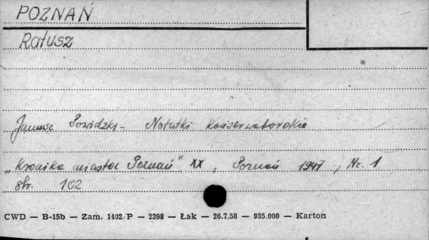 POZNAŃ
Ratusz
Janusz Powidzki - Notatki Konserwatorskie
„Kronika miasta Poznań" XX, Poznań 1947, Nr. 1
str. 102
CWD — B-15b — Zam. 1402/P — 2398 — Łak — 26.7.58 — 935.000 — Karton